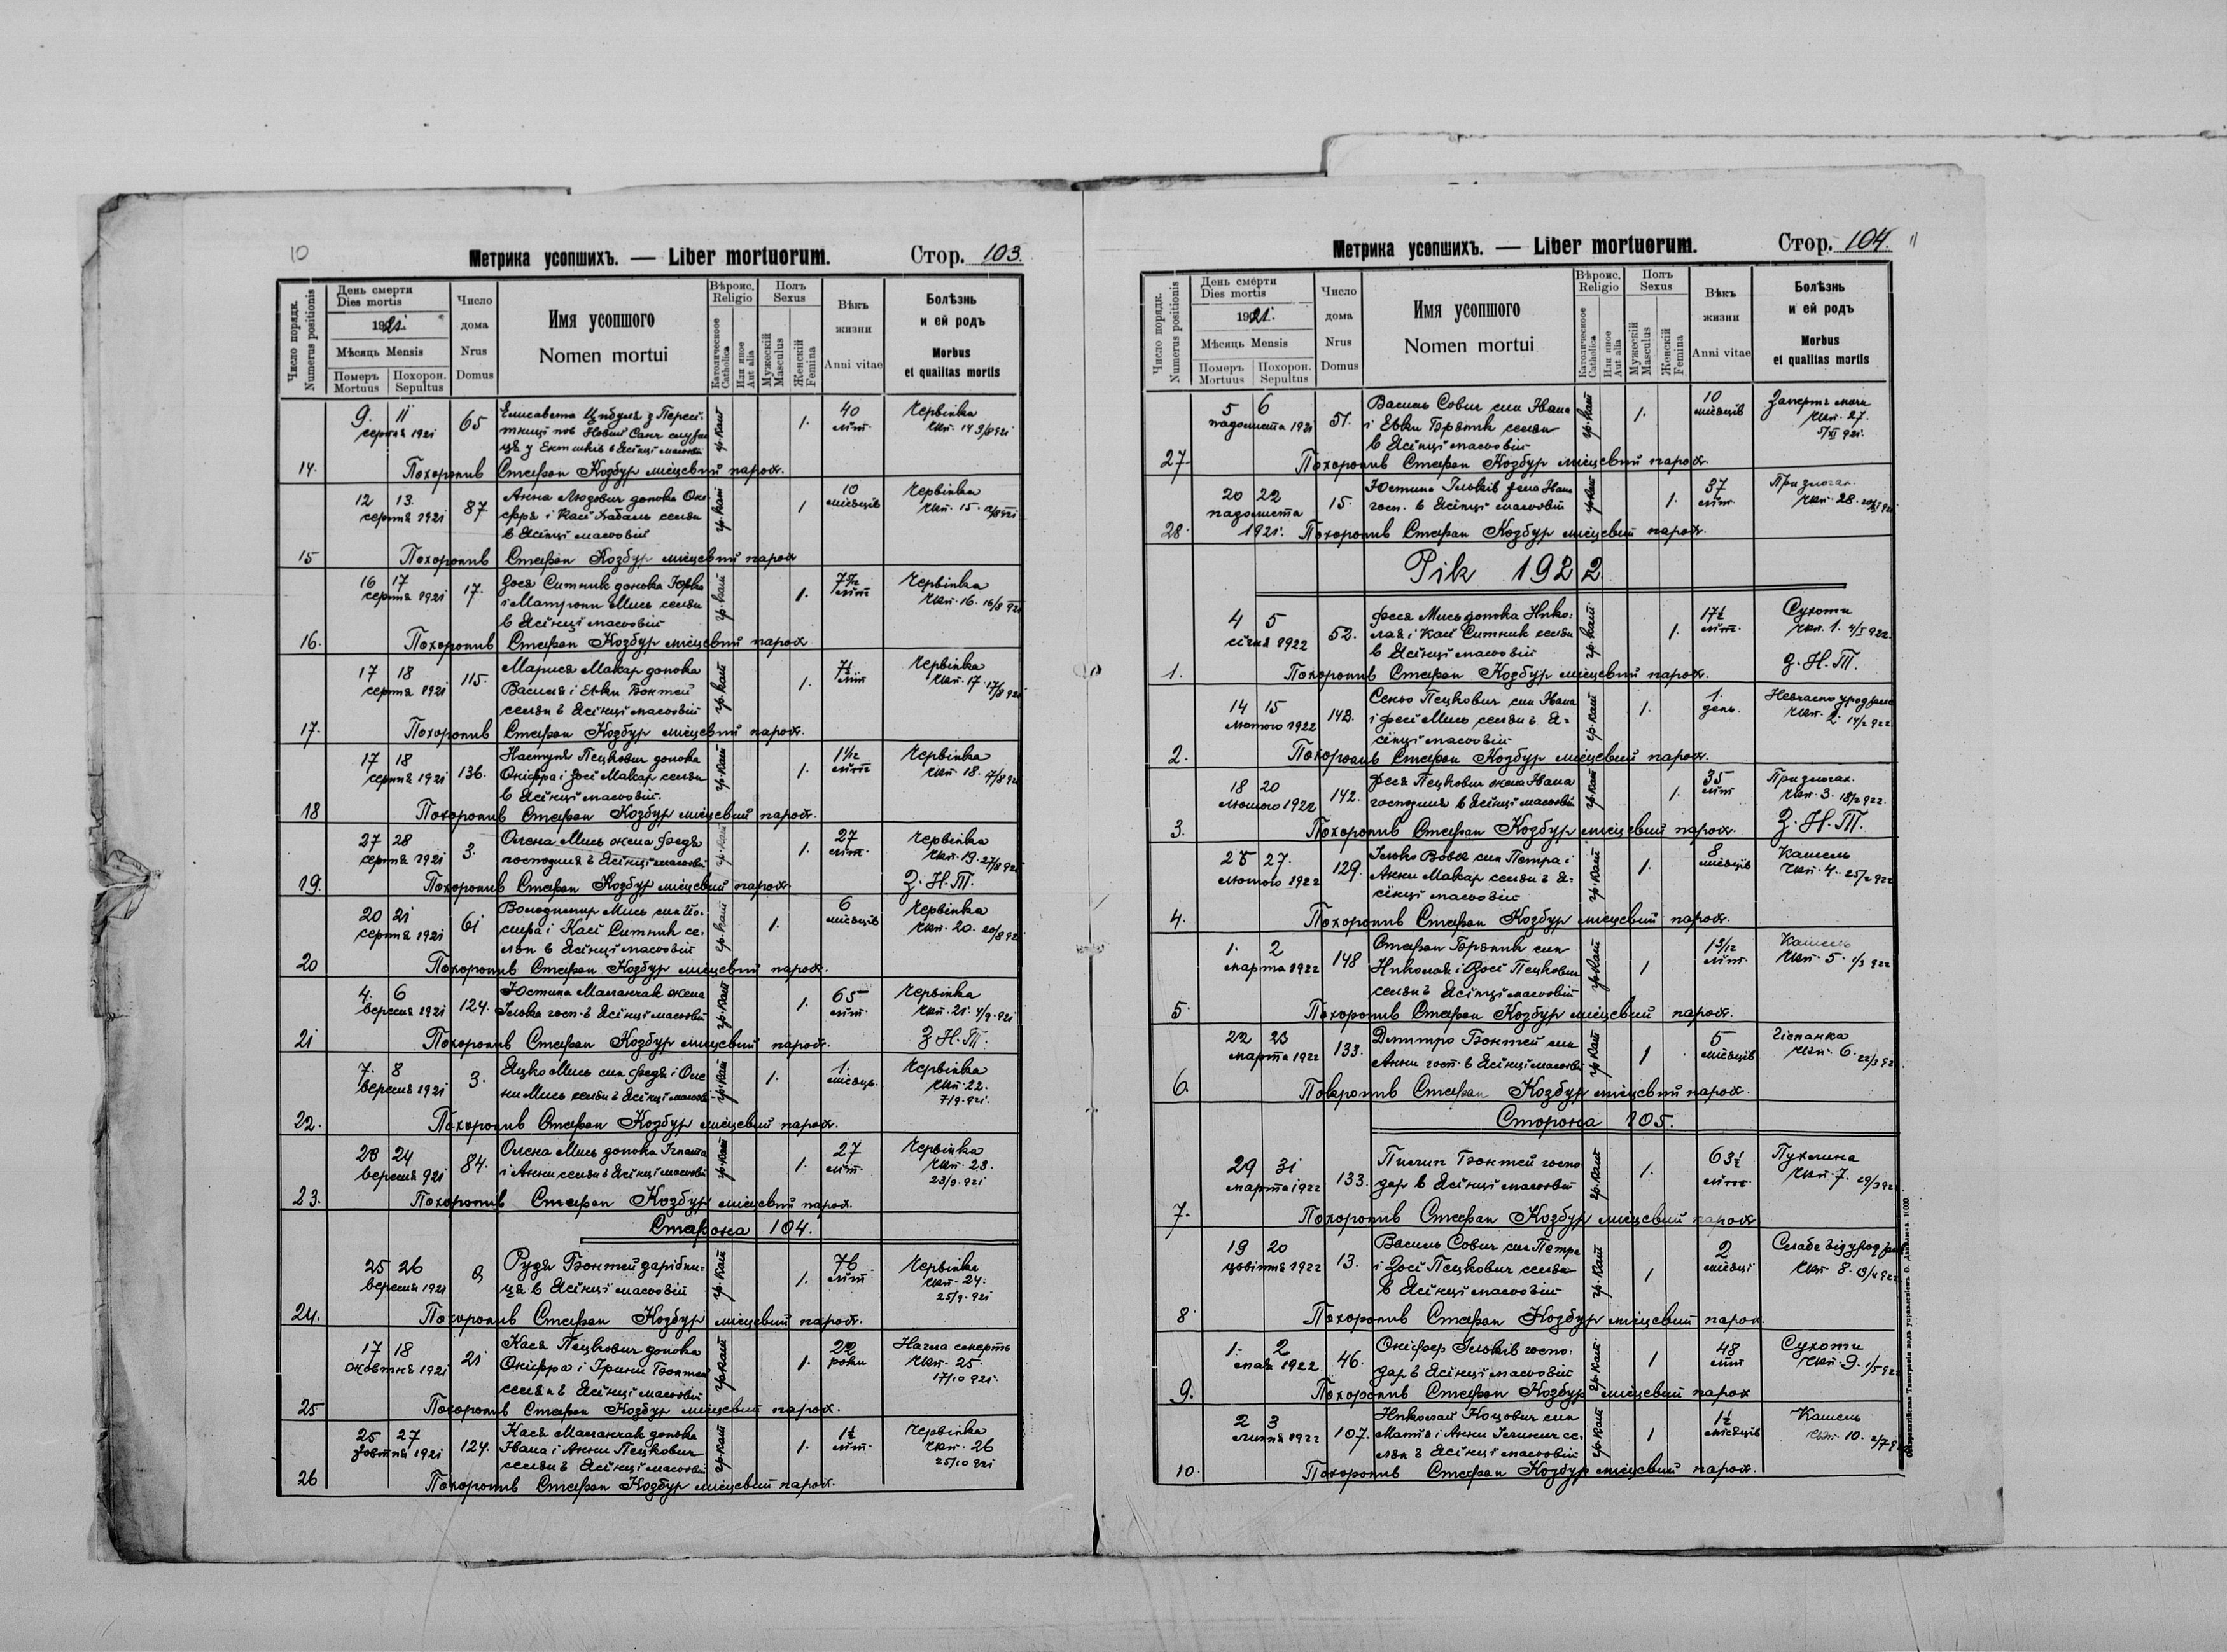 10
Метрика усопшихъ. — Liber mortuorum.
Стор. 103.
Число порядк.
Numerus positionis
День смерти
Dies mortis
1921.
Мѣсяць Mensis
Померъ
Mortuus
Похорон.
Sepultus
Число
дома
Nrus
Domus
Имя усопшого
Nomen mortui
Вѣроис.
Religio
Католическое
Catholica
Или иное
Aut alia
Полъ
Sexus
Мужескій
Masculus
Женскій
Femina
Вѣкъ
жизни
Anni vitae
Болѣзнь
и ей родъ
Morbus
et qualitas mortis
14. 9. 11 серпня 1921 65 гр. кат 1. 40 літ. Червінка
Елисавета Цибуля з
пов. Новий Санч
Чкп. 14 9/8 921
Похоронив Стефан Козбур місцевий парох.
15 12 13. серпня 1921 87. гр. кат 1 10 місяців Червінка
Анна Людович донька
і Касі Хабаль селян
в Ясінці масьовій
Чкп. 15.
Похоронив Стефан Козбур місцевий парох
16. 16 17 серпня 1921 17. гр. кат 1. літ Червінка
Зося Ситник донька Юрка
і Матрони Мись селян
в Ясінці масьовій
Чкп. 16. 16/8 921
Похоронив Стефан Козбур місцевий парох
17. 17 18 серпня 1921 115. гр. кат 1. 7½ літ Червінка
Марися Макар донька
Василя і Евки Бохтей
селян в Ясінці масьовій
Чкп. 17. 17/8 921
Похоронив Стефан Козбур місцевий парох.
18 17 18 серпня 1921 136. гр. кат 1. літ Червінка
Настуня Пецкович донька
Онифра і Зосі Макар селян
в Ясінці масьовій.
Чкп. 18. 17/8 921
Похоронив Стефан Козбур місцевий парох.
19. 27 28 серпня 1921 3. гр. кат 1. 27 літ. Червінка
Олена Мись жена Федя
господиня в Ясінці масьовій
Чкп. 19. 27/8 921
З. Н. Т.
Похоронив Стефан Козбур місцевий парох
20 20 21 серпня 1921 61 гр. кат 1. 6 місяців Червінка
Володимир Мись син Йо-
сифа і Касі Ситник се-
лян в Ясінці масьовій
Чкп. 20. 20/8 921
Похоронив Стефан Козбур місцевий парох.
21 4. 6 вересня 1921 124. гр. кат 1. 65 літ. Червінка
Юстина Маланчак жена
Ілька госп. в Ясінці масьовій
Чкп. 21. 4/9. 921
З Н. Т.
Похоронив Стефан Козбур місцевий парох.
22. 7. 8 вересня 1921 3. гр. кат 1. 1. місяць. Червінка
Яцко Мись син Федя і Оле
ни Мись селян в Ясінці масьовій
Чкп. 22. 7/9. 921.
Похоронив Стефан Козбур місцевий парох.
23. 23 24 вересня 921 84. гр. кат 1. 27 літ. Червінка
Олена Мись донька Ігната
і Анни селян в Ясінці масьовій
Чкп. 23. 23/9. 921
Похоронив Стефан Козбур місцевий парох.
Сторона 104.
24. 25 26 вересня 1921 гр. кат 1. 76 літ Червінка
Рудя Бохтей зарібни-
ця в Ясінці масьовій
Чкп. 24. 25/9. 921
Похоронив Стефан Козбур місцевий парох.
25 17 18 жовтня 1921 21 гр. кат 1. 22 роки Нагла смерть
Кася Пецкович донька
Онифра і Ірини Бохтей
селян в Ясінці масьовій
Чкп. 25. 17/10 921.
Похоронив Стефан Козбур місцевий парох.
26 25 27 жовтня 1921 124. гр. кат 1. 1½ літ. Червінка
Кася Маланчак донька
Івана і Анни Пецкович
селян в Ясінці масьовій
Чкп. 26 25/10 921
Похоронив Стефан Козбур місцевий парох.
Метрика усопшихъ. — Liber mortuorum.
Стор. 104.
11
Число порядк.
Numerus positionis
День смерти
Dies mortis
1921.
Мѣсяць Mensis
Померъ
Mortuus
Похорон.
Sepultus
Число
дома
Nrus
Domus
Имя усопшого
Nomen mortui
Вѣроис.
Religio
Католическое
Catholica
Или иное
Aut alia
Полъ
Sexus
Мужескій
Masculus
Женскій
Femina
Вѣкъ
жизни
Anni vitae
Болѣзнь
и ей родъ
Morbus
et qualitas mortis
27. 5 6 падолиста 1921 51. гр. кат 1. 10 місяців
Василь Сович син Івана
і Евки Горяник селян
в Ясінці масьовій
Чкп. 27. 5/XI 921.
Похоронив Стефан Козбур місцевий парох.
28. 20 22 падолиста 1921. 15. гр. кат 1. 37 літ.
Юстина Ільків жена Івана
госп. в Ясінці масьовій
Чкп. 28.
Похоронив Стефан Козбур місцевий парох.
Рік 1922
1. 4 5 січня 1922 52. гр. кат. 1. 17½ літ. Сухоти
Феся Мись донька Нико-
лая і Касі Ситник селян
в Ясінці масьовій
Чкп. 1. 4/I 922.
З. Н. Т.
Похоронив Стефан Козбур місцевий парох.
2. 14 15 лютого 1922 142. гр. кат 1. 1. день.
Сенько Пецкович син Івана
і Фесі Мись селян в Я-
сінці масьовій
Чкп. 2. 14/2 922
Похоронив Стефан Козбур місцевий парох.
3. 18 20 лютого 1922 142. гр. кат 1. 35 літ
Феся Пецкович жена Івана
господиня в Ясінці масьовій
Чкп. 3. 18/2 922.
З. Н. Т.
Похоронив Стефан Козбур місцевий парох.
4. 25 27. лютого 1922 129. гр. кат 1. 8 місяців Кашель
Ілько Вовк син Петра і
Анни Макар селян в Я-
сінці масьовій
Чкп. 4. 25/2 922
Похоронив Стефан Козбур місцевий парох.
5. 1. 2 марта 1922 148 гр. кат 1 1 3/12 літ. Кашель
Стефан Горяник син
Николая і Зосі Пецкович
селян в Ясінці масьовій
Чкп. 5. 1/3 922
Похоронив Стефан Козбур місцевий парох.
6. 22 23 марта 1922 133. гр. кат 1 5 місяців Гіспанка
Дмитро Бохтей син
Анни госп. в Ясінці масьовій
Чкп. 6. 22/3 92
Похоронив Стефан Козбур місцевий парох.
Сторона 105.
7. 29 31 марта 1922 133. гр. кат 1. 63½ літ. Пухлина
Пилип Бохтей госпо
дар в Ясінці масьовій
Чкп. 7. 29/3 92
Похоронив Стефан Козбур місцевий парох
8. 19 20 цвітня 1922 13. гр. кат 1 2 місяці
Василь Сович син Петра
і Зосі Пецкович селян
в Ясінці масьовій
Чкп. 8. 19/4 922
Похоронив Стефан Козбур місцевий парох
9. 1. 2 мая 1922 46. гр. кат 1 48 літ Сухоти
Онифер Ільків госпо-
дар в Ясінці масьовій
Чкп. 9. 1/5 922
Похоронив Стефан Козбур місцевий парох
10. 2 3 липня 1922 107. гр. кат 1 1½ місяців Кашель
Николай Коцович син
Матія і Анни се-
лян в Ясінці масьовій
Чкп. 10. 2/7 9
Похоронив Стефан Козбур місцевий парох.